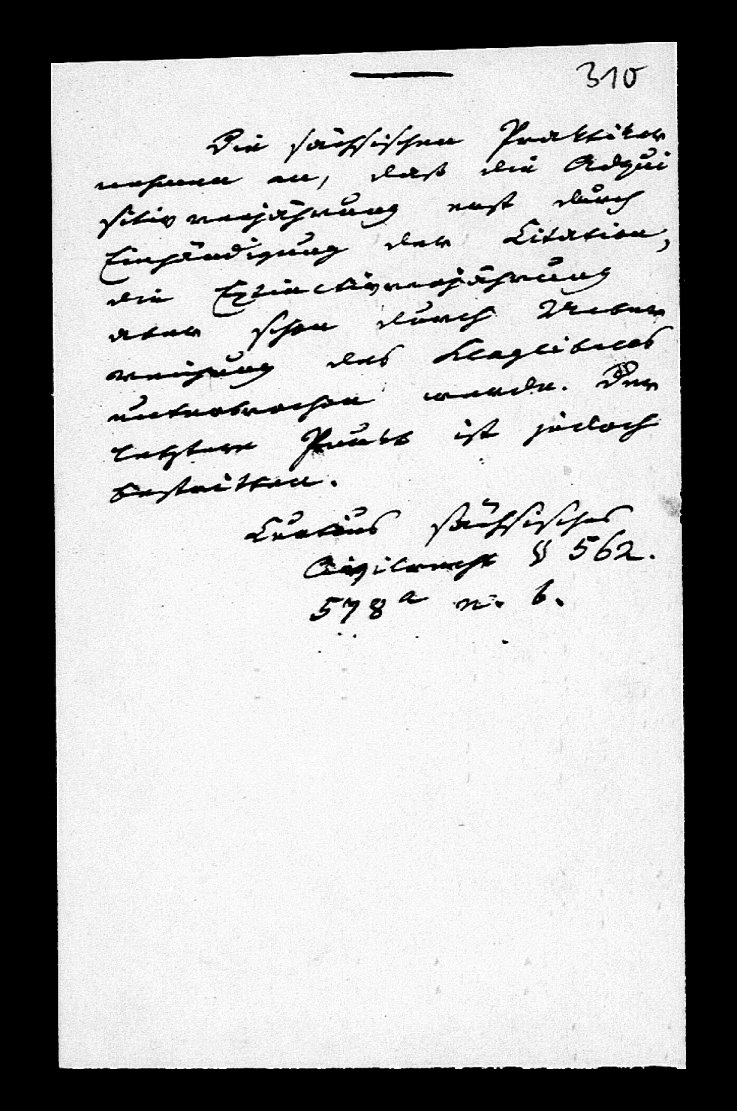 310
Die sächsischen Praktiker
nehmen an, daß die Adqui
sitivverjährung erst durch
Einhändigung der Citation,
die Extinctivverjährung
aber schon durch Ueber
reichung des Klaglibells
unterbrochen werde. Der
letztere Punkt ist jedoch
bestritten.
Curtius sächsisches
Civilrecht § 562.
578 a n. b.